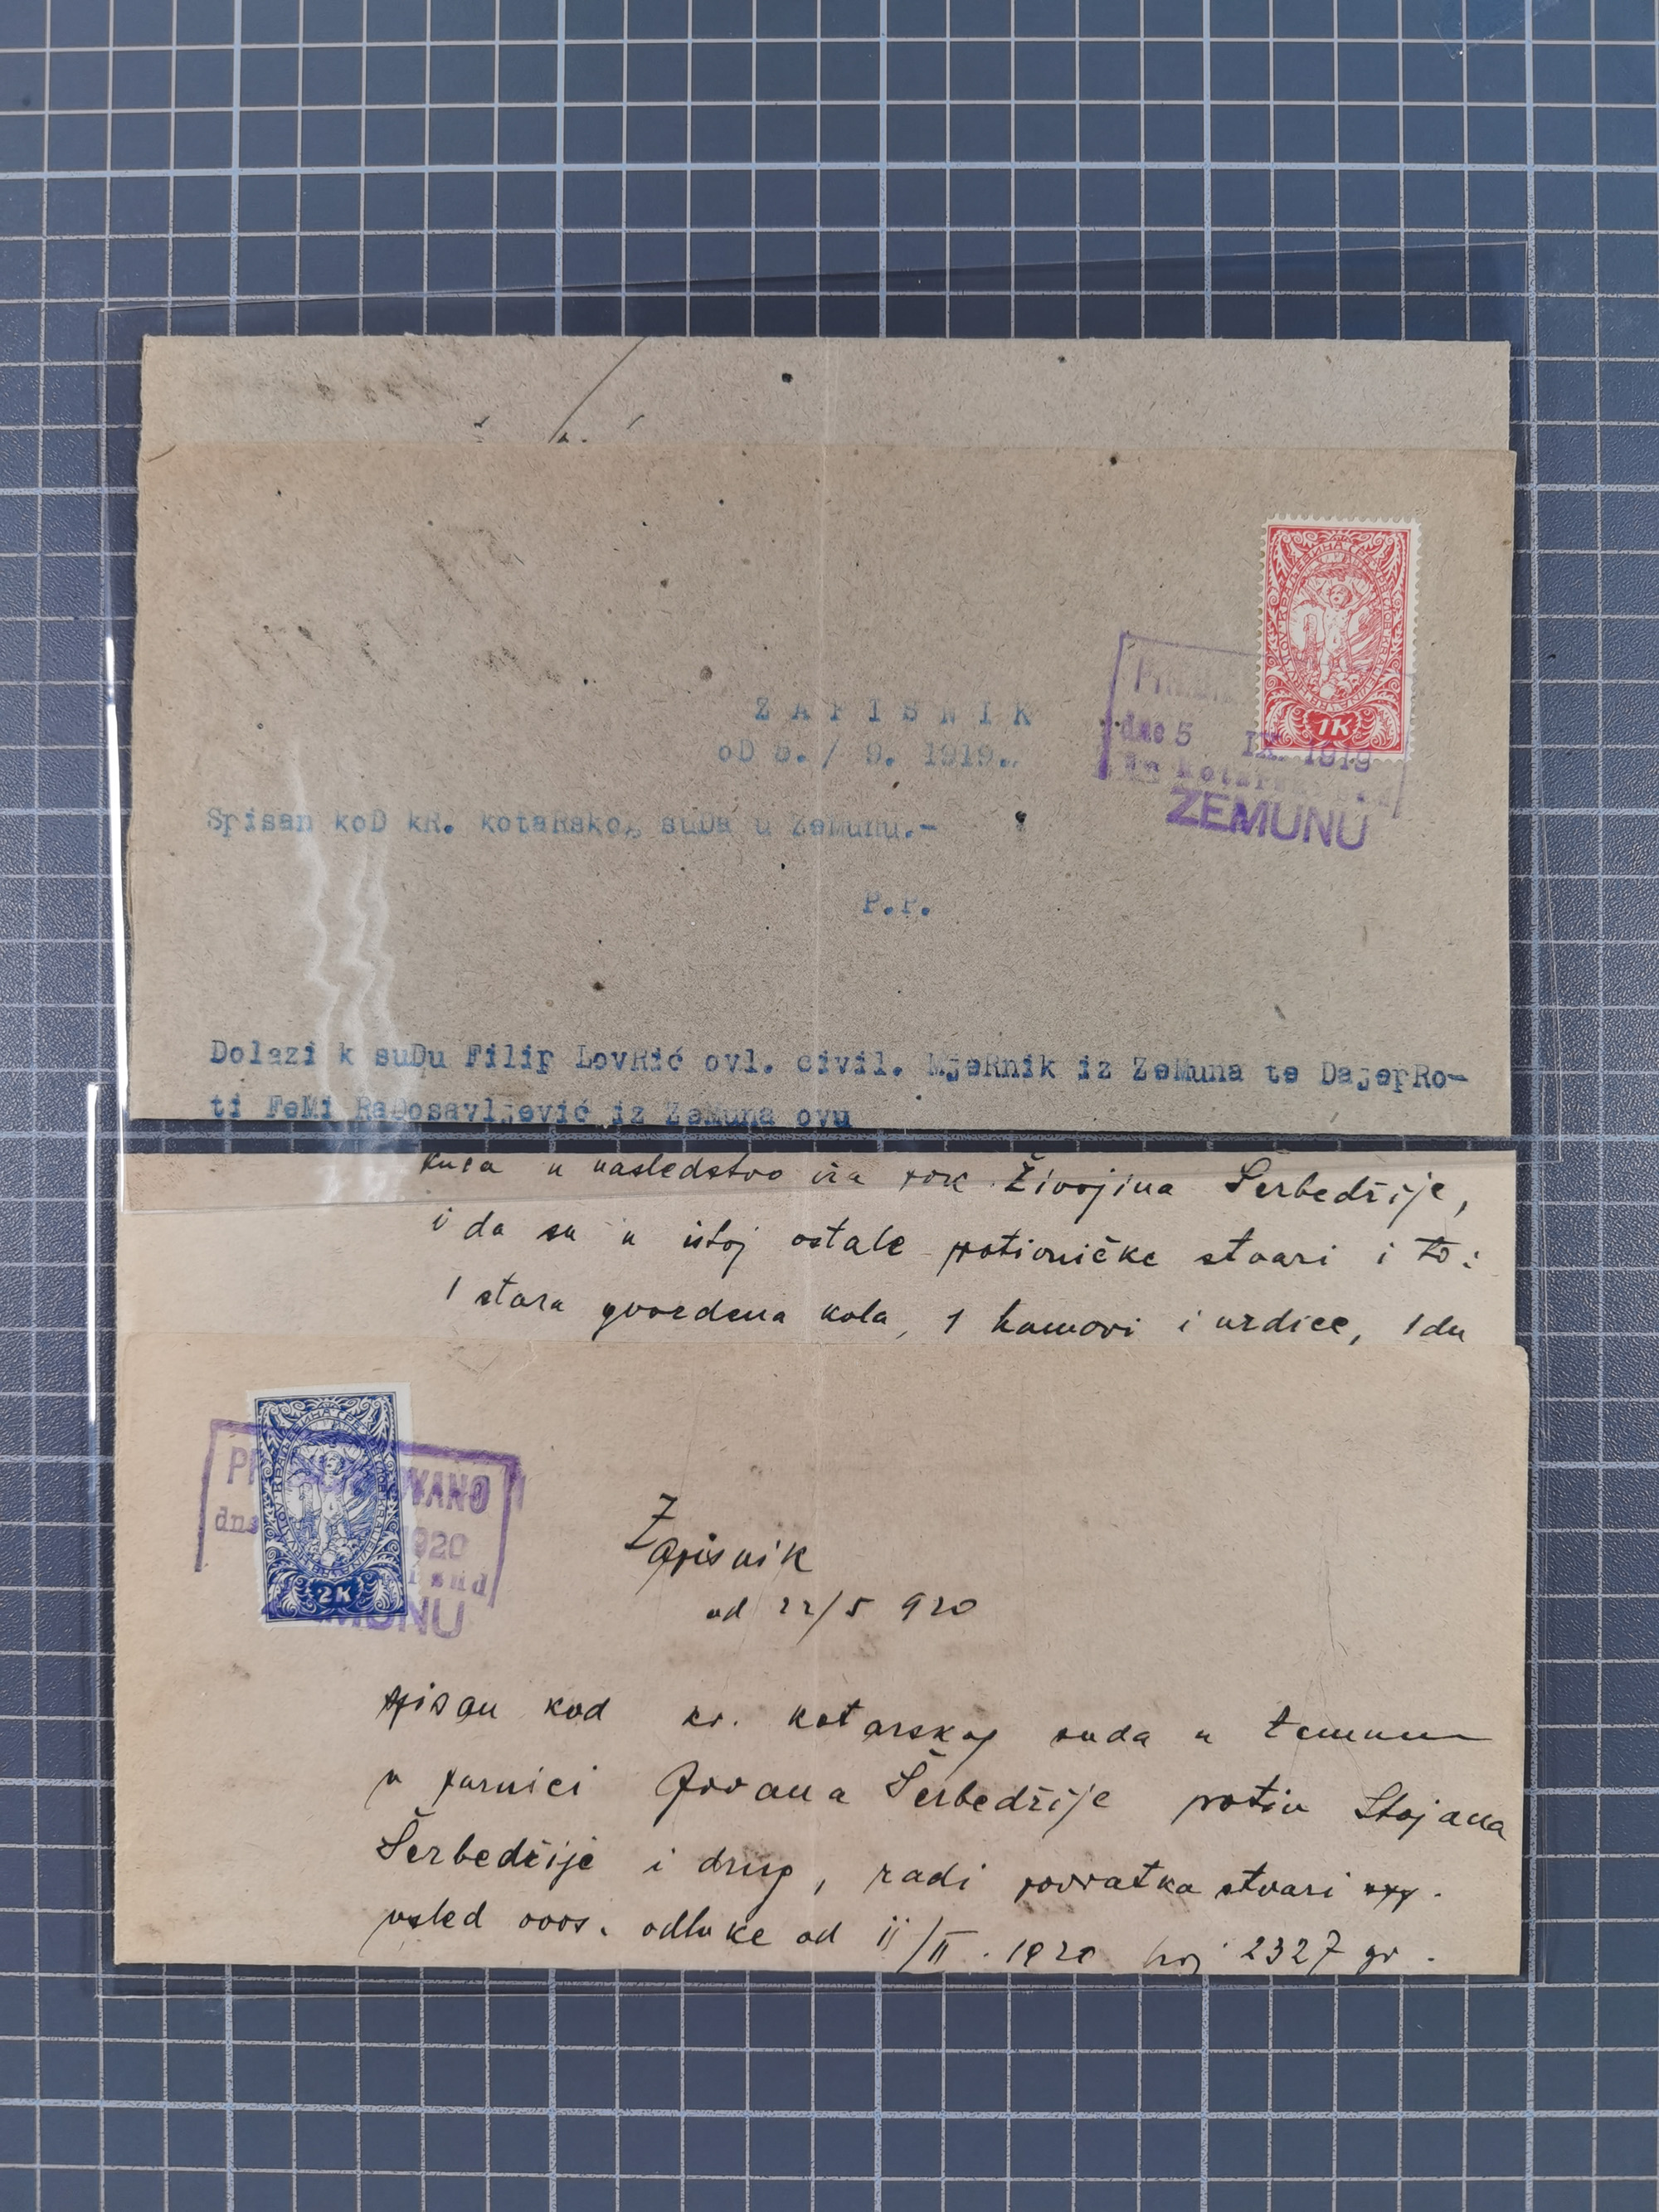 1K
PR
dne 5 IX. 1919
kr. kotarski sud
ZEMUNU
Z A P I S N I K
oD 5. / 9. 1919.
Spisan koD kR. kotaRskog suDa u ZeMunu.-
P.P.
Dolazi k suDu Filip LovRić ovl. civil. MjeRnik iz ZeMuna te DajepRo-
ti FeMi RaDosavljević iz ZeMuna ovu
kuća u nasledstvo iza pok Živojina Šerbedžije,
i da su u istoj ostale protivničke stvari i to:
1 stara gvozdena kola, 1 hamovi i uzdice, 1 du
2K
P VANO
dne 1920
sud
ZEMUNU
Zapisnik
od 22/5 920
spisan kod kr. kotarskog suda u Zemunu
u parnici Jovana Šerbedžije protiv Stojana
Šerbedžije i drug, radi povratka stvari
usled ovos. odluke od 11/II. 1920 broj 2327 gr.